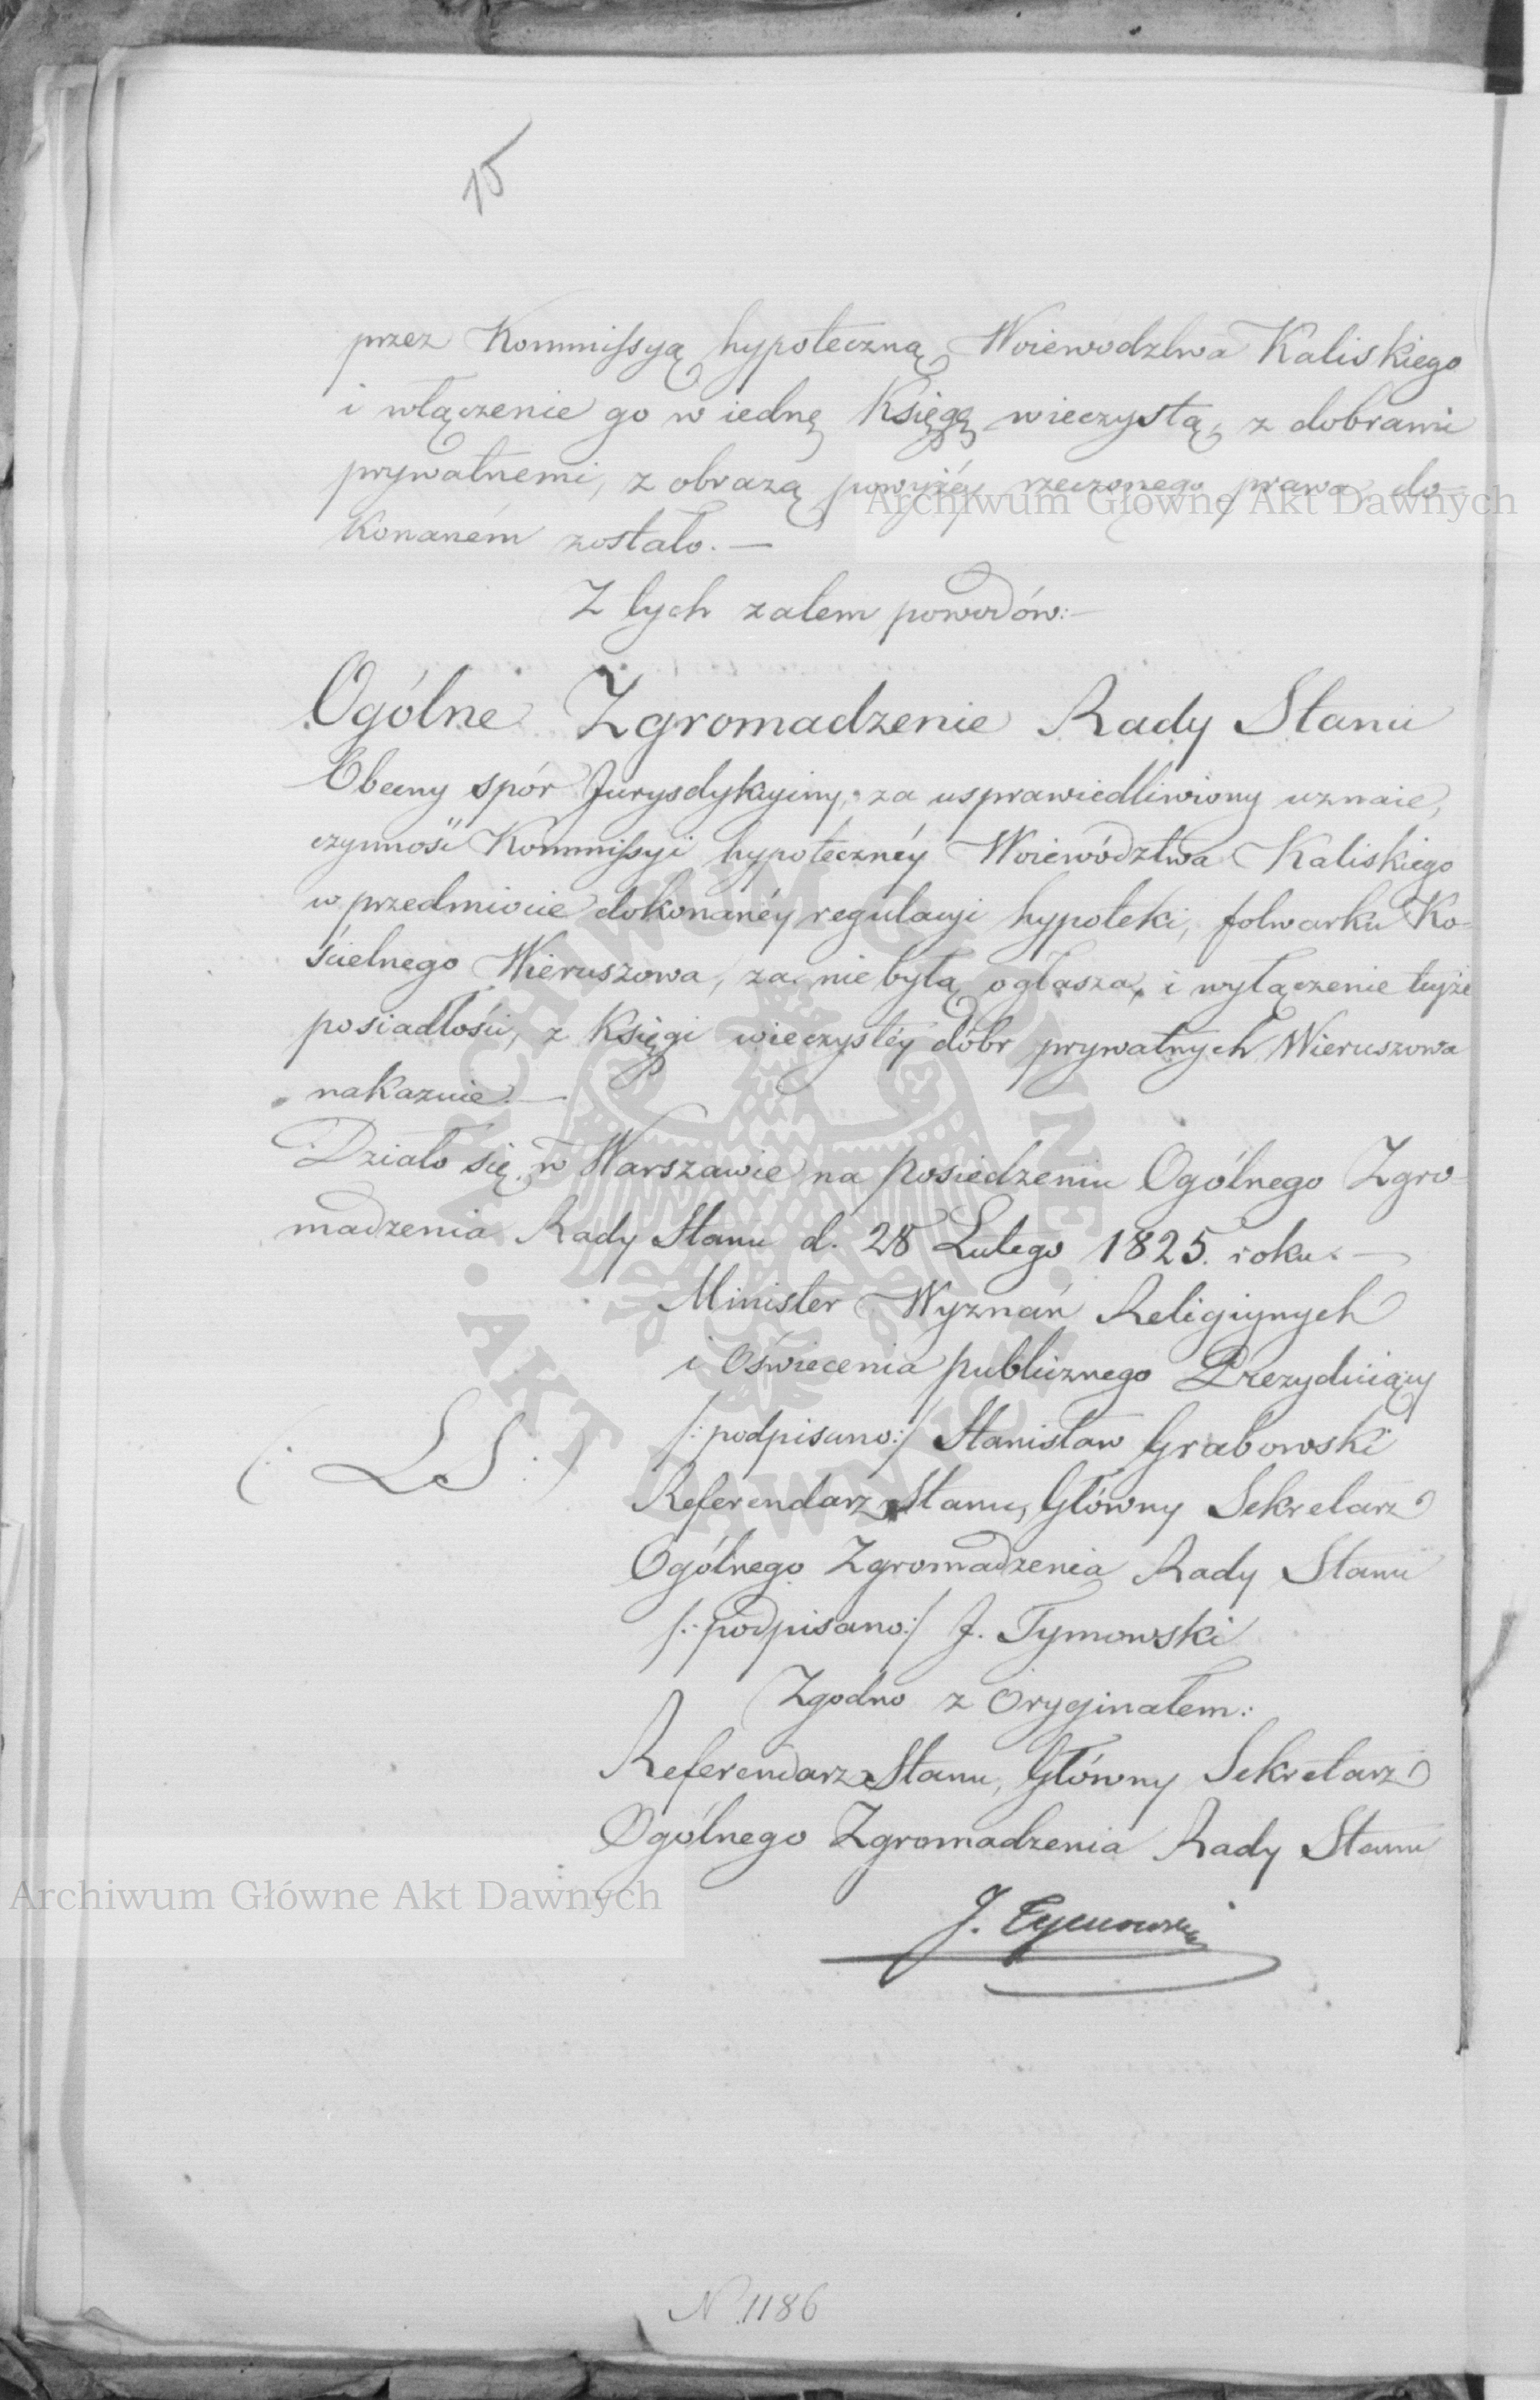 15
przez Kommissyą hypoteczną Woiewodztwa Kaliskiego
i włączenie go w iednę Księgę wieczystą, z dobrami
prywatnemi, z obrazą powyżéy rzeczonego prawa, do-
konaném zostało. —
Z tych zatem powodów: —
Ogólne Zgromadzenie Rady Stanu
Obecny spór Jurysdykcyiny, za usprawiedliwiony uznaie,
czynność Kommissyi hypotecznéy Woiewództwa Kaliskiego
w przedmiocie dokonanéy regulacyi hypoteki, folwarku Ko-
ścielnego Wieruszowa, za nie byłą ogłasza, i wyłączenie teyże
posiadłości, z Księgi wieczystéy dóbr prywatnych Wieruszowa
nakazuie. —
Działo się w Warszawie na posiedzeniu Ogólnego Zgro-
madzenia Rady Stanu d. 28 Lutego 1825. roku. —
Minister Wyznań Religiynych
i Oświecenia publicznego Prezyduiący
(: L S :)
/: podpisano :/ Stanisław Grabowski
Referendarz Stanu, Główny Sekretarz
Ogólnego Zgromadzenia Rady Stanu
/: podpisano :/ J. Tymowski
Zgodno z Oryginałem:
Referendarz Stanu, Główny Sekretarz
Ogólnego Zgromadzenia Rady Stanu
J. Tymowski
N. 1186
Archiwum Główne Akt Dawnych
Archiwum Główne Akt Dawnych
ARCHIWUM GŁÓWNE AKT DAWNYCH